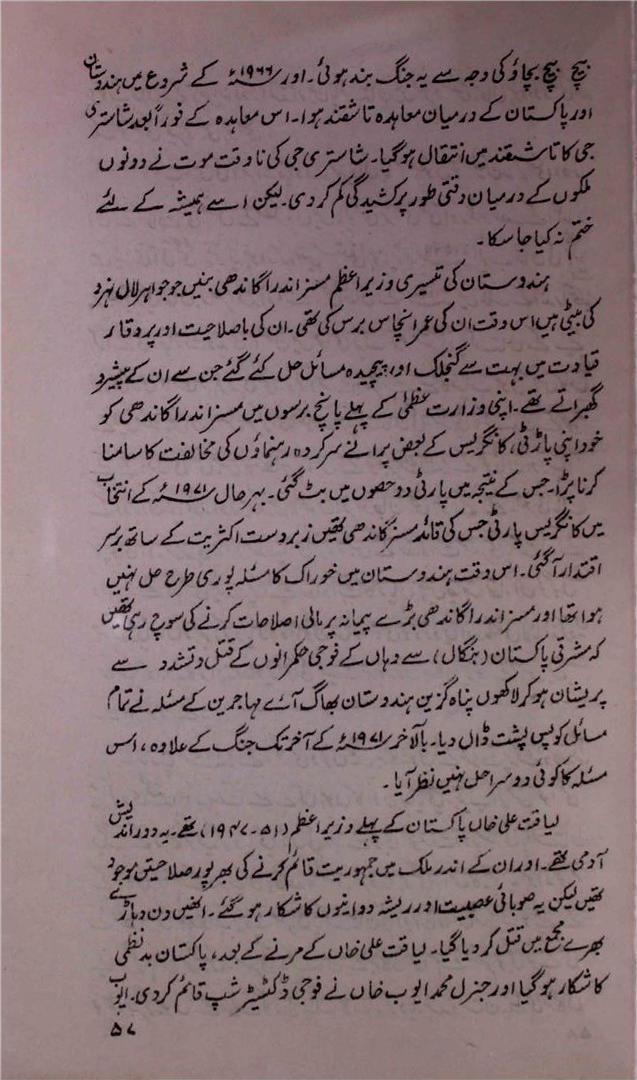 بیچ بیچ بچاؤ کی وجہ سے یہ جنگ بند ہوئی۔ اور ۱۹۶۶ء کے شروع میں ہندوستان
اور پاکستان کے درمیان معاہدہ تاشقند ہوا۔ اس معاہدہ کے فوراً بعد شاستری
جی کا تاشقند میں انتقال ہوگیا۔ شاستری جی کی نا وقت موت نے دونوں
ملکوں کے درمیان وقتی طور پر کشیدگی کم کردی۔ لیکن اسے ہمیشہ کے لئے
ختم نہ کیا جا سکا۔
ہندوستان کی تیسری وزیر اعظم مسز اندرا گاندھی بنیں جو جواہر لال نہرو
کی بیٹی ہیں اس وقت ان کی عمر انچاس برس کی تھی۔ ان کی باصلاحیت اور پر وقار
قیادت میں بہت سے گنجلک اور پیچیدہ مسائل حل کئے گئے جن سے ان کے پیشرو
گھبراتے تھے۔ اپنی وزارت عظمیٰ کے پہلے پانچ برسوں میں مسز اندرا گاندھی کو
خود اپنی پارٹی، کانگریس کے بعض پرانے سرکردہ رہنماؤں کی مخالفت کا سامنا
کرنا پڑا۔ جس کے نتیجہ میں پارٹی دو حصوں میں بٹ گئی۔ بہرحال ۱۹۷۱ء کے انتخاب
میں کانگریس پارٹی جس کی قائد مسز گاندھی تھیں زبردست اکثریت کے ساتھ برسر
اقتدار آگئی۔ اس وقت ہندوستان میں خوراک کا مسئلہ پوری طرح حل نہیں
ہوا تھا اور مسز اندرا گاندھی بڑے پیمانہ پر مالی اصلاحات کرنے کی سوچ رہی تھیں
کہ مشرقی پاکستان (بنگال) سے وہاں کے فوجی حکمرانوں کے قتل و تشدد سے
پریشان ہوکر لاکھوں پناہ گزین ہندوستان بھاگ آئے مہاجرین کے مسئلہ نے تمام
مسائل کو پس پشت ڈال دیا۔ بالآخر ۱۹۷۱ء کے آخر تک جنگ کے علاوہ، اس
مسئلہ کا کوئی دوسرا حل نہیں نظر آیا۔
لیاقت علی خاں پاکستان کے پہلے وزیر اعظم (۵۱-۱۹۴۷) تھے۔ یہ دور اندیش
آدمی تھے۔ اور ان کے اندر ملک میں جمہوریت قائم کرنے کی بھرپور صلاحیتیں موجود
تھیں لیکن یہ صوبائی عصبیت اور ریشہ دوانیوں کا شکار ہو گئے۔ انھیں دن دہاڑے
بھرے مجمع میں قتل کر دیا گیا۔ لیاقت علی خاں کے مرنے کے بعد، پاکستان بدنظمی
کا شکار ہوگیا اور جنرل محمد ایوب خاں نے فوجی ڈکٹیٹر شپ قائم کردی۔ ایوب
۵۷